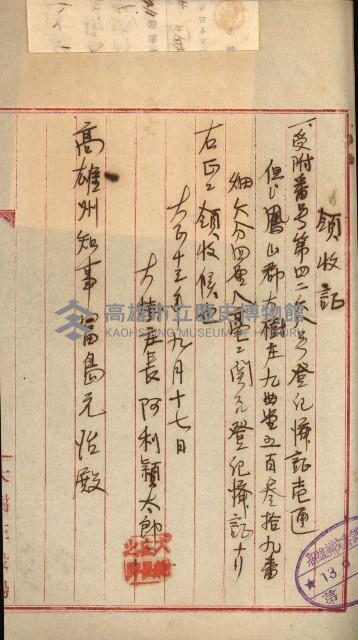 領收証
一、受附番号第四二六号登記濟証壱通
但シ鳳山郡大樹庄九曲堂五百叁拾九番
畑六分四厘八毫ニ関スル登記濟証ナリ
右正ニ領收候也
大正十三年九月十七日
大樹庄長 阿利穎太郎
高雄州知事 富島元治殿
高雄市立歷史博物館
KAOHSIUNG MUSEUM OF HISTORY